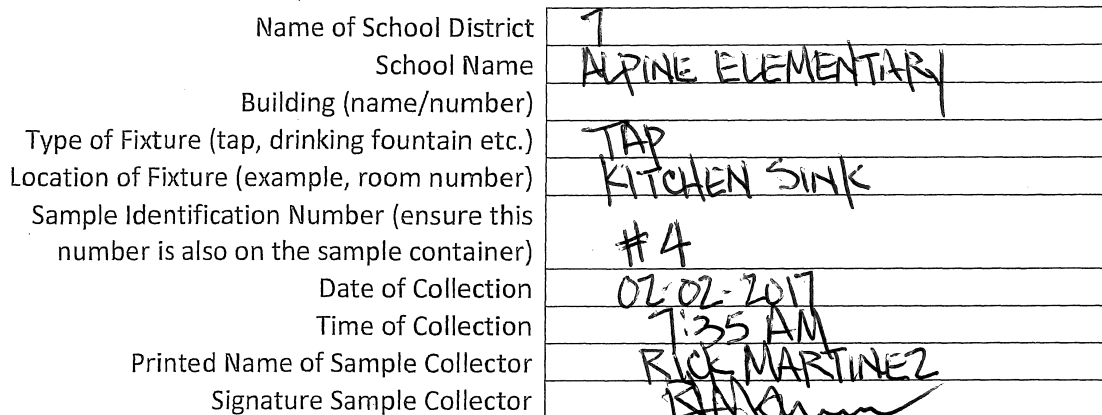 Name of School District 7
School Name ALPINE ELEMENTARY
Building (name/number)
Type of Fixture (tap, drinking fountain etc.) TAP
Location of Fixture (example, room number) KITCHEN SINK
Sample Identification Number (ensure this
number is also on the sample container) #4
Date of Collection 02-02-2017
Time of Collection 7:35 AM
Printed Name of Sample Collector RICK MARTINEZ
Signature Sample Collector